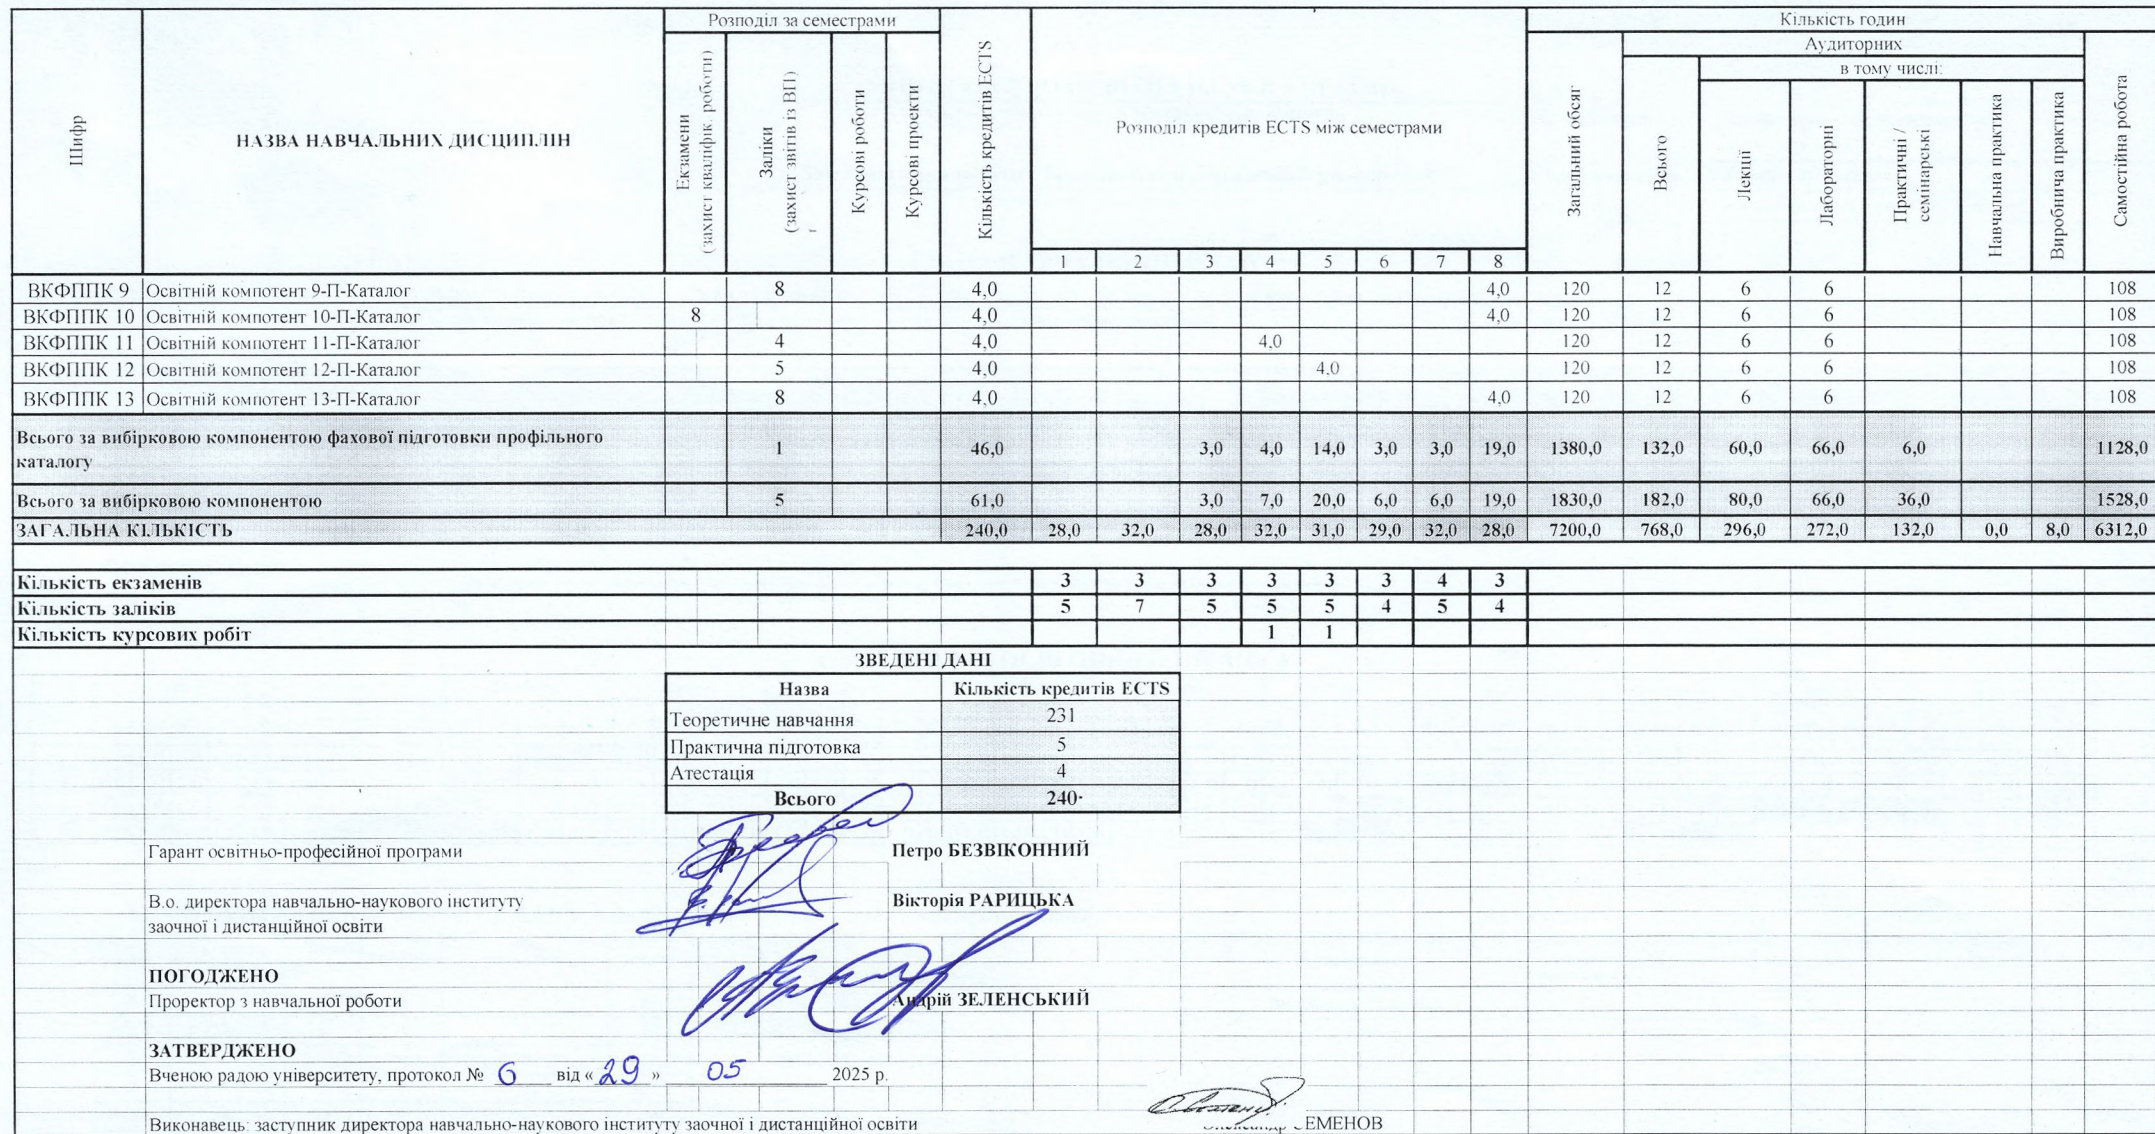 Шифр
НАЗВА НАВЧАЛЬНИХ ДИСЦИПЛІН
Розподіл за семестрами
Екзамени
(захист кваліфік. роботи)
Заліки
(захист звітів із ВП)
Курсові роботи
Курсові проекти
Кількість кредитів ECTS
Розподіл кредитів ECTS між семестрами
1 2 3 4 5 6 7 8
Кількість годин
Загальний обсяг
Аудиторних
Всього
в тому числі:
Лекції
Лабораторні
Практичні /
семінарські
Навчальна практика
Виробнича практика
Самостійна робота
ВКФППК 9 Освітній компотент 9-П-Каталог 8 4,0 4,0 120 12 6 6 108
ВКФППК 10 Освітній компотент 10-П-Каталог 8 4,0 4,0 120 12 6 6 108
ВКФППК 11 Освітній компотент 11-П-Каталог 4 4,0 4,0 120 12 6 6 108
ВКФППК 12 Освітній компотент 12-П-Каталог 5 4,0 4,0 120 12 6 6 108
ВКФППК 13 Освітній компотент 13-П-Каталог 8 4,0 4,0 120 12 6 6 108
Всього за вибірковою компонентою фахової підготовки профільного
каталогу 1 46,0 3,0 4,0 14,0 3,0 3,0 19,0 1380,0 132,0 60,0 66,0 6,0 1128,0
Всього за вибірковою компонентою 5 61,0 3,0 7,0 20,0 6,0 6,0 19,0 1830,0 182,0 80,0 66,0 36,0 1528,0
ЗАГАЛЬНА КІЛЬКІСТЬ 240,0 28,0 32,0 28,0 32,0 31,0 29,0 32,0 28,0 7200,0 768,0 296,0 272,0 132,0 0,0 8,0 6312,0
Кількість екзаменів 3 3 3 3 3 3 4 3
Кількість заліків 5 7 5 5 5 4 5 4
Кількість курсових робіт 1 1
ЗВЕДЕНІ ДАНІ
Назва Кількість кредитів ECTS
Теоретичне навчання 231
Практична підготовка 5
Атестація 4
Всього 240
Гарант освітньо-професійної програми Петро БЕЗВІКОННИЙ
В.о. директора навчально-наукового інституту Вікторія РАРИЦЬКА
заочної і дистанційної освіти
ПОГОДЖЕНО
Проректор з навчальної роботи Андрій ЗЕЛЕНСЬКИЙ
ЗАТВЕРДЖЕНО
Вченою радою університету, протокол № 6 від « 29 » 05 2025 р.
Виконавець: заступник директора навчально-наукового інституту заочної і дистанційної освіти